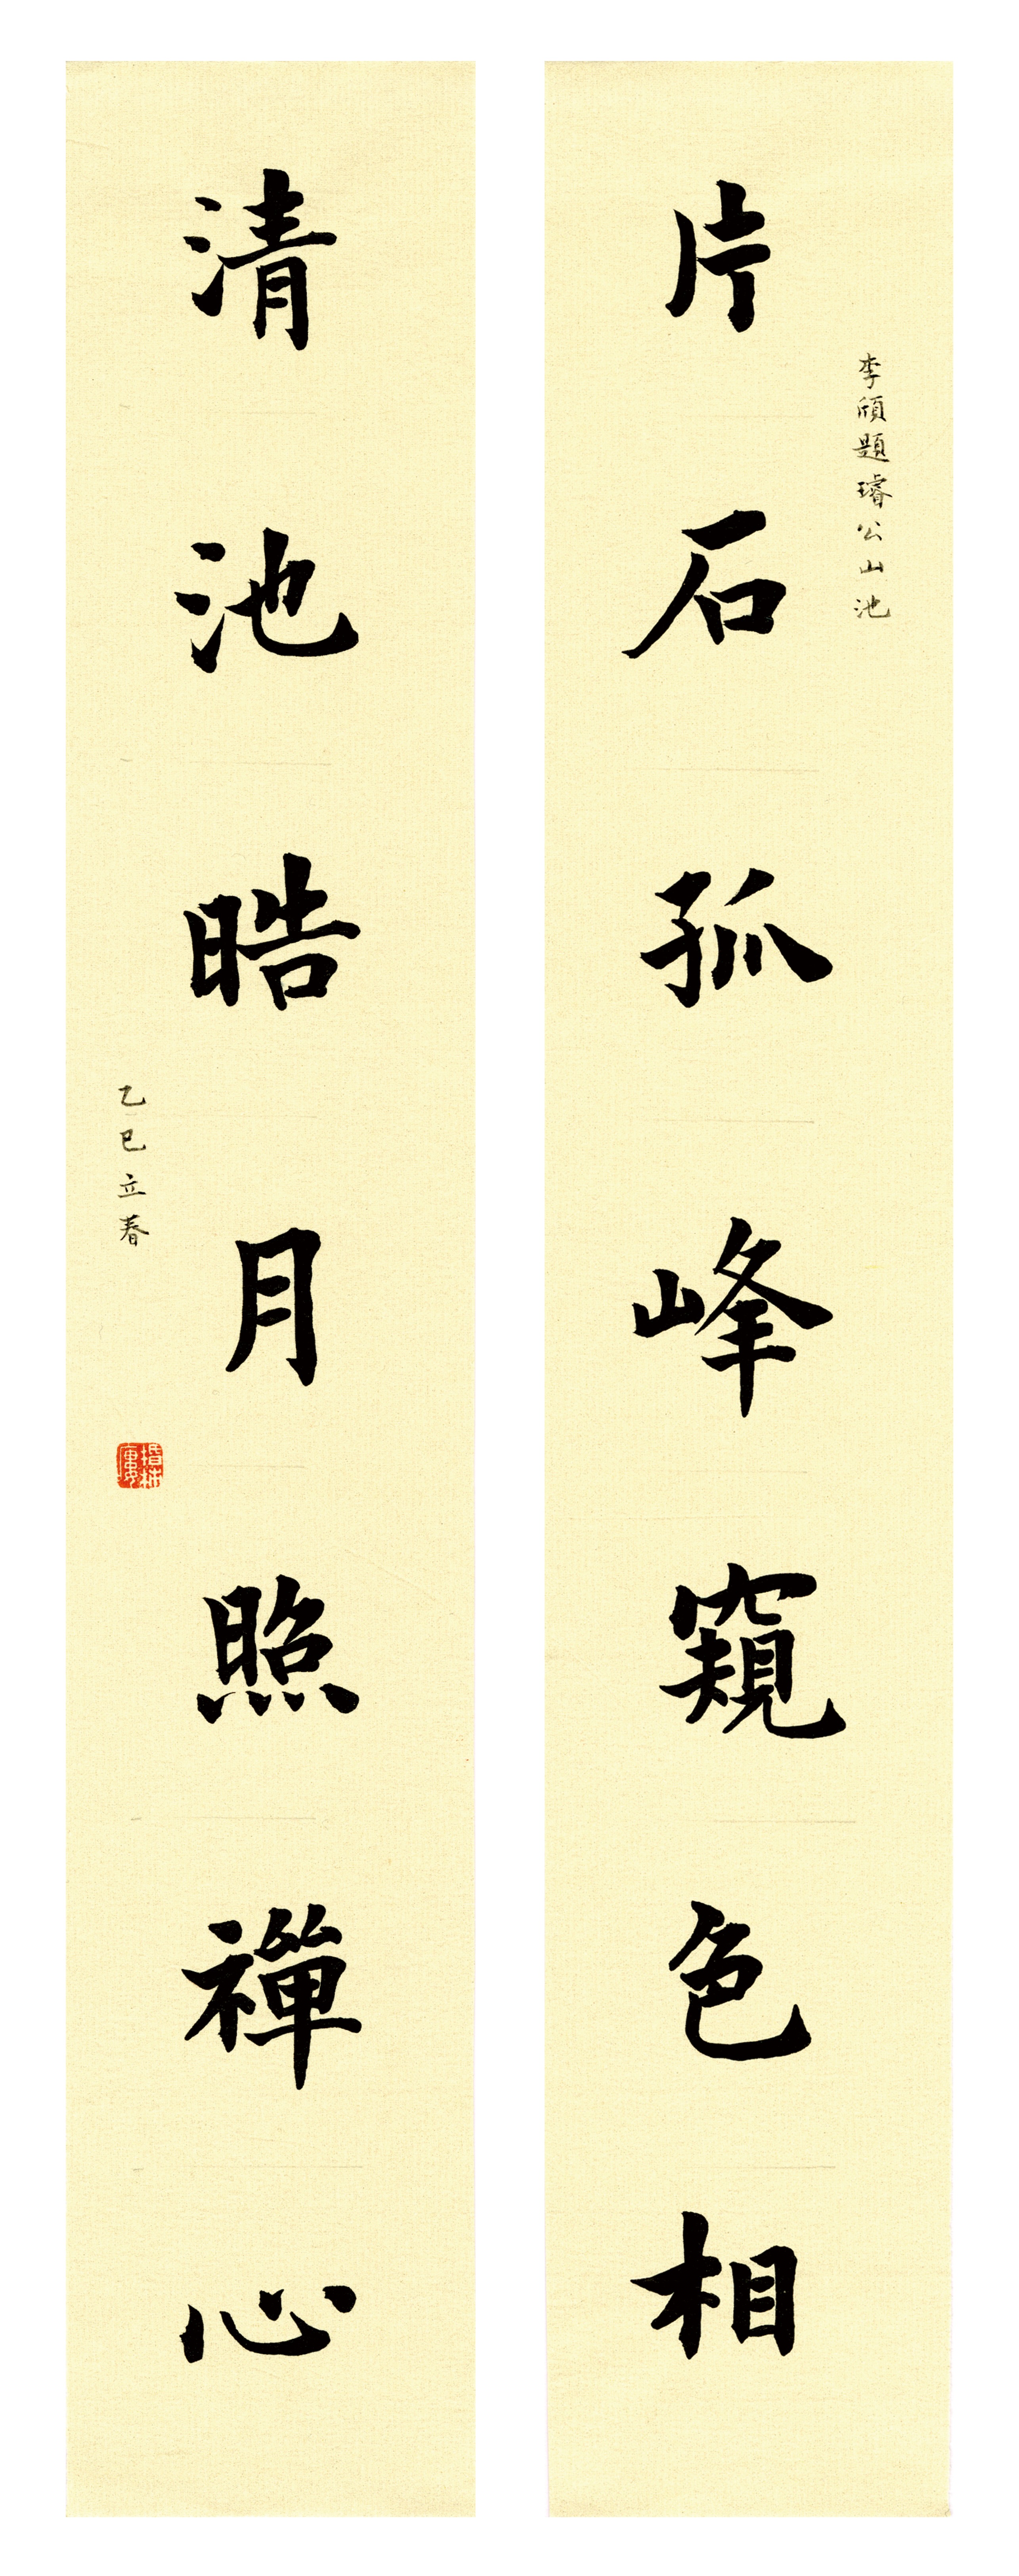 李頎題璿公山池
片石孤峰窺色相
清池晧月照禪心
乙巳立春